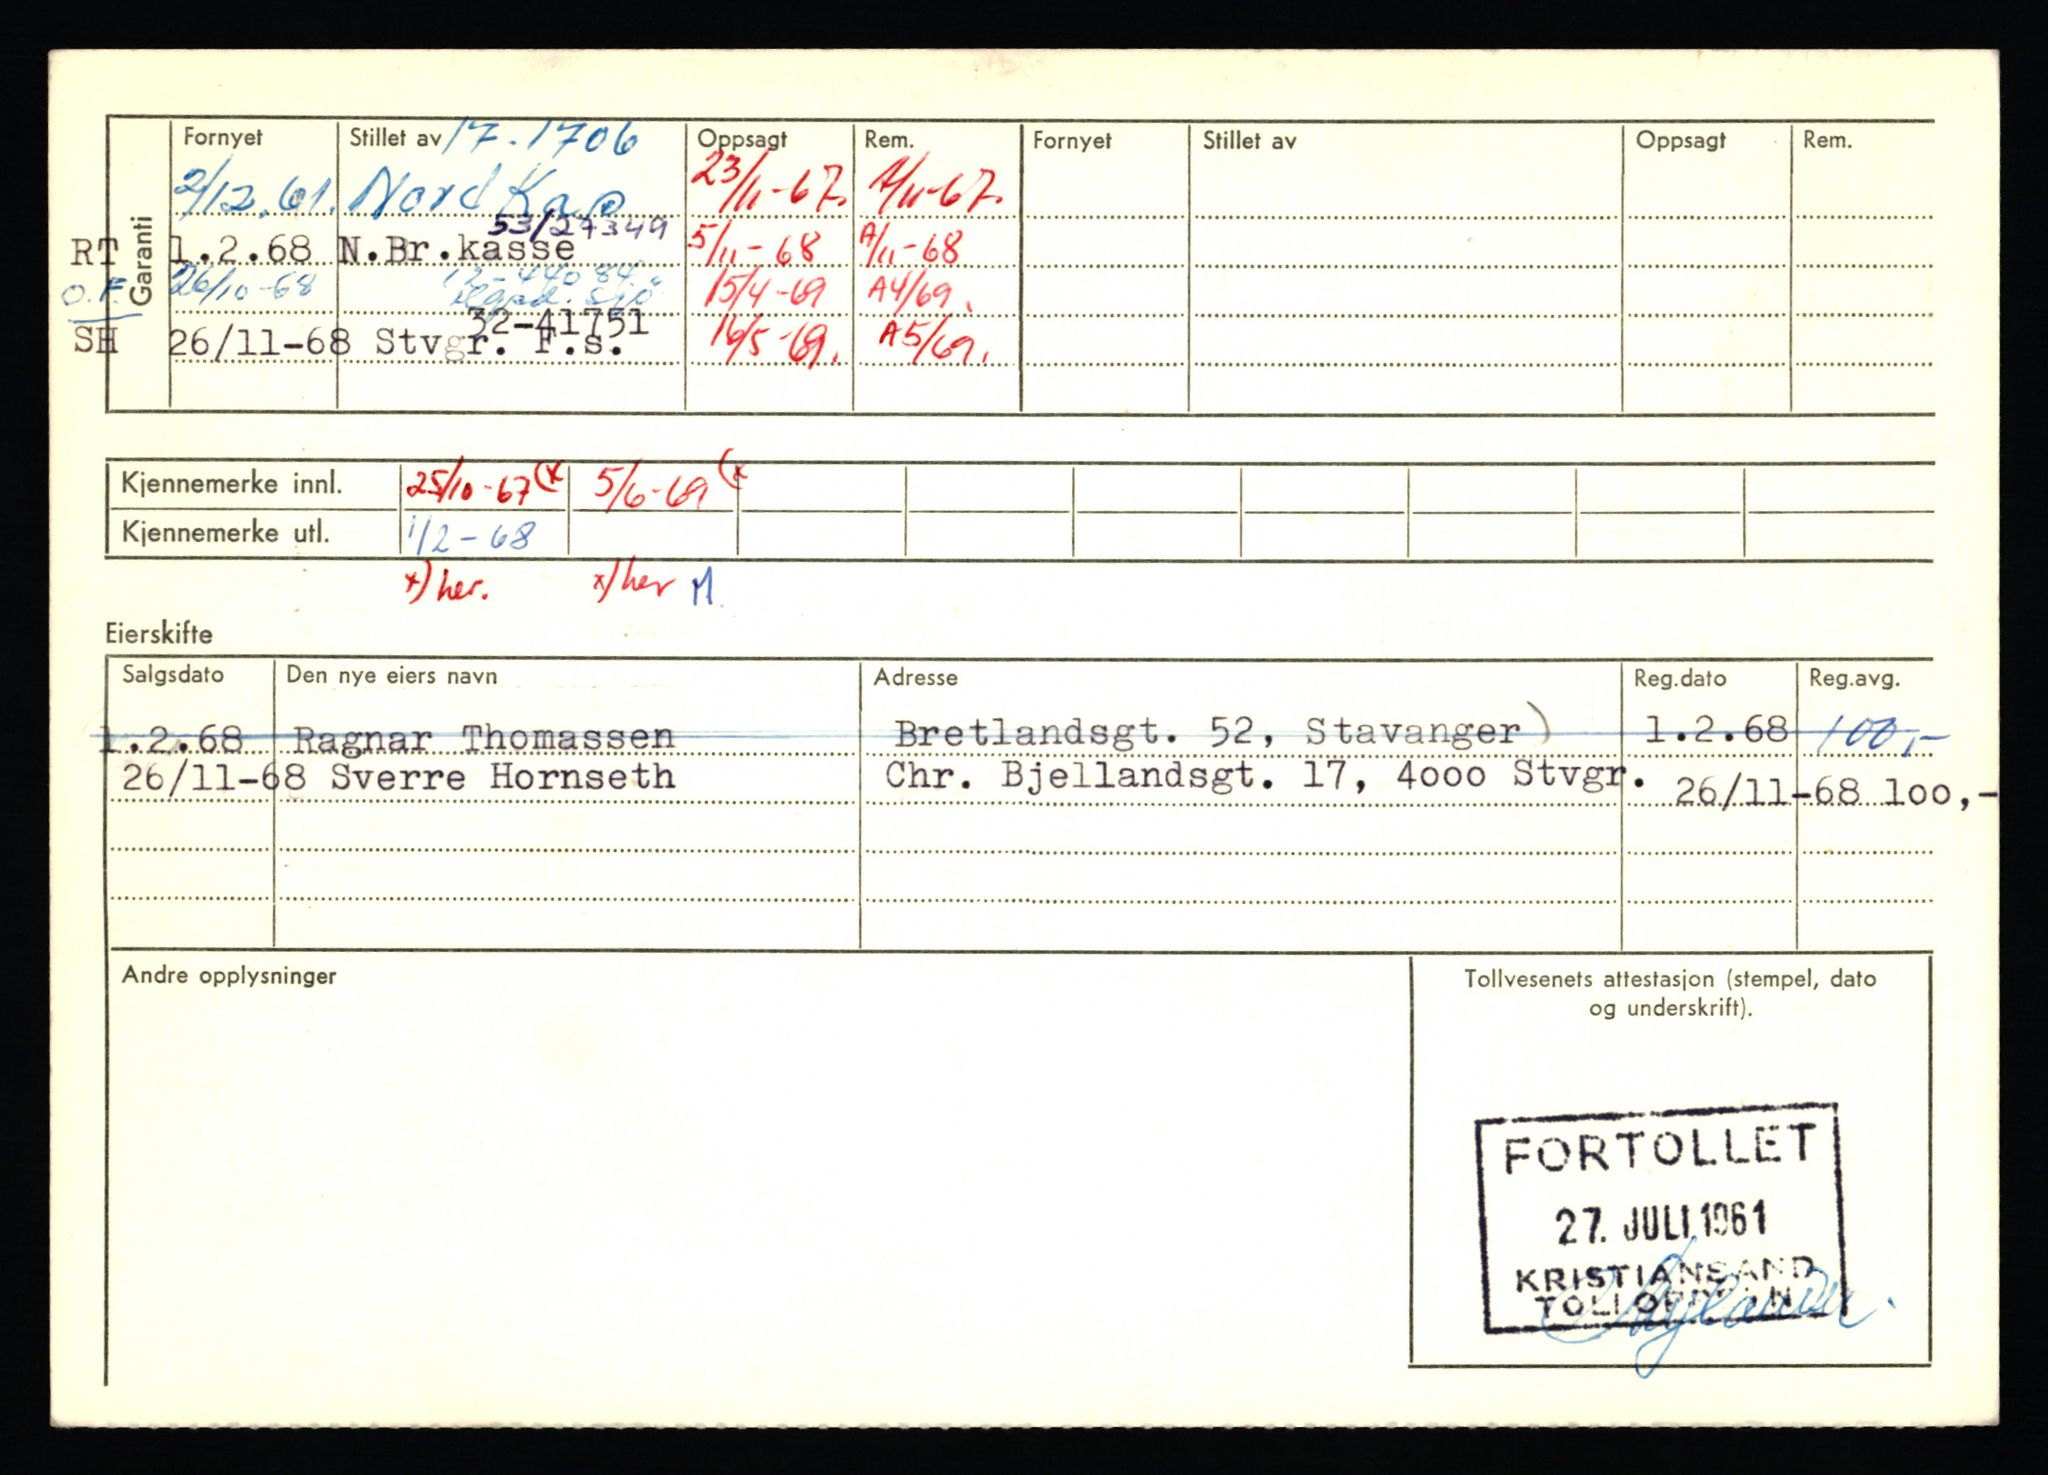 Garanti
Fornyet Stillet av 17-1706 Oppsagt Rem. Fornyet Stillet av Oppsagt Rem.
2/12.61. Nord Kap 23/11-67. A/11-67.
53/27349
RT 1.2.68 N.Br.kasse 5/11-68 A/11-68
O.F. 26/10-68 15/4-69 A4/69.
32-41751
SH 26/11-68 Stvgr. F.s. 16/5-69. A5/69.
Kjennemerke innl. 25/10-67 (x 5/6-69 (x
Kjennemerke utl. 1/2-68
x) her. x) her M
Eierskifte
Salgsdato Den nye eiers navn Adresse Reg.dato Reg.avg.
1.2.68 Ragnar Thomassen Bretlandsgt. 52, Stavanger) 1.2.68 100,-
26/11-68 Sverre Hornseth Chr. Bjellandsgt. 17, 4000 Stvgr. 26/11-68 100,-
Andre opplysninger
Tollvesenets attestasjon (stempel, dato
og underskrift).
FORTOLLET
27. JULI 1961
KRISTIANSAND